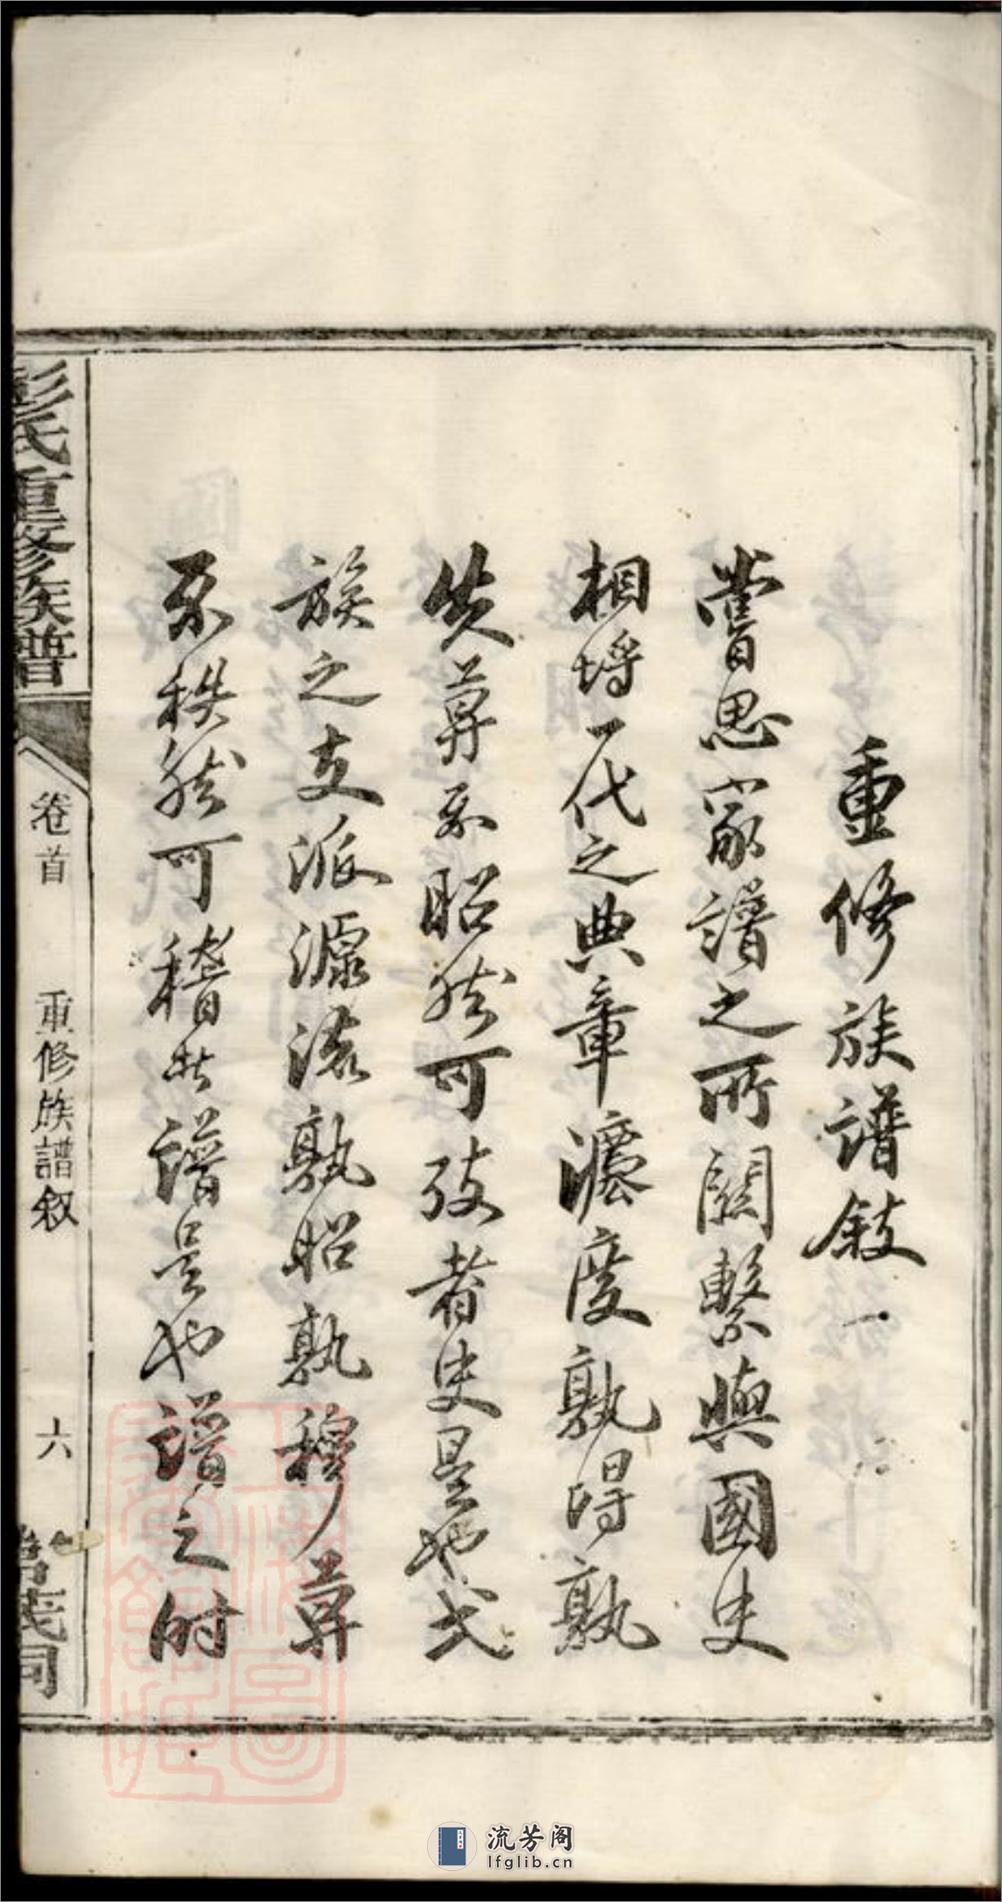 重修族譜敍一
嘗思家譜之所關繫與國史
相埒一代之典章灋度孰得孰
失莫不昭然可攷者史是也弌
族之支派源流孰昭孰穆莫
不秩然可稽者譜是也譜之時
彭氏重修族譜
卷首 重修族譜叙 六
流芳阁
lfglib.cn